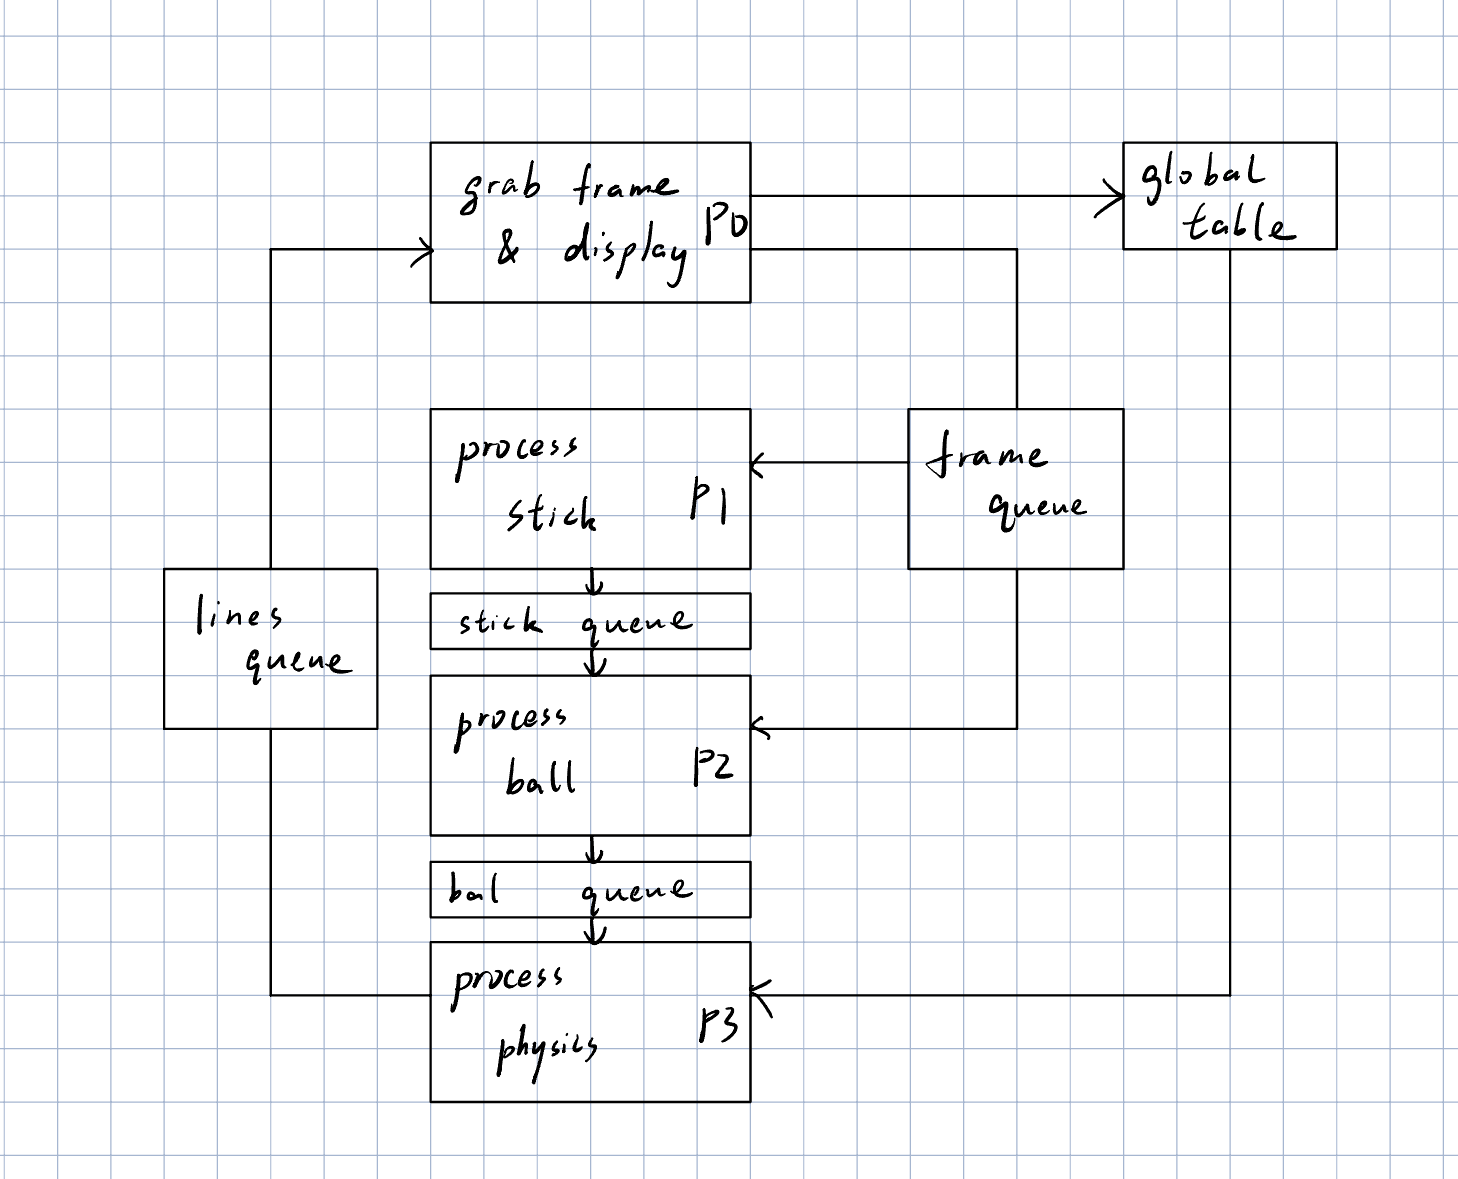 grab frame
& display
P0
global
table
process
stick
P1
frame
queue
stick queue
lines
queue
process
ball
P2
bal queue
process
physics
P3